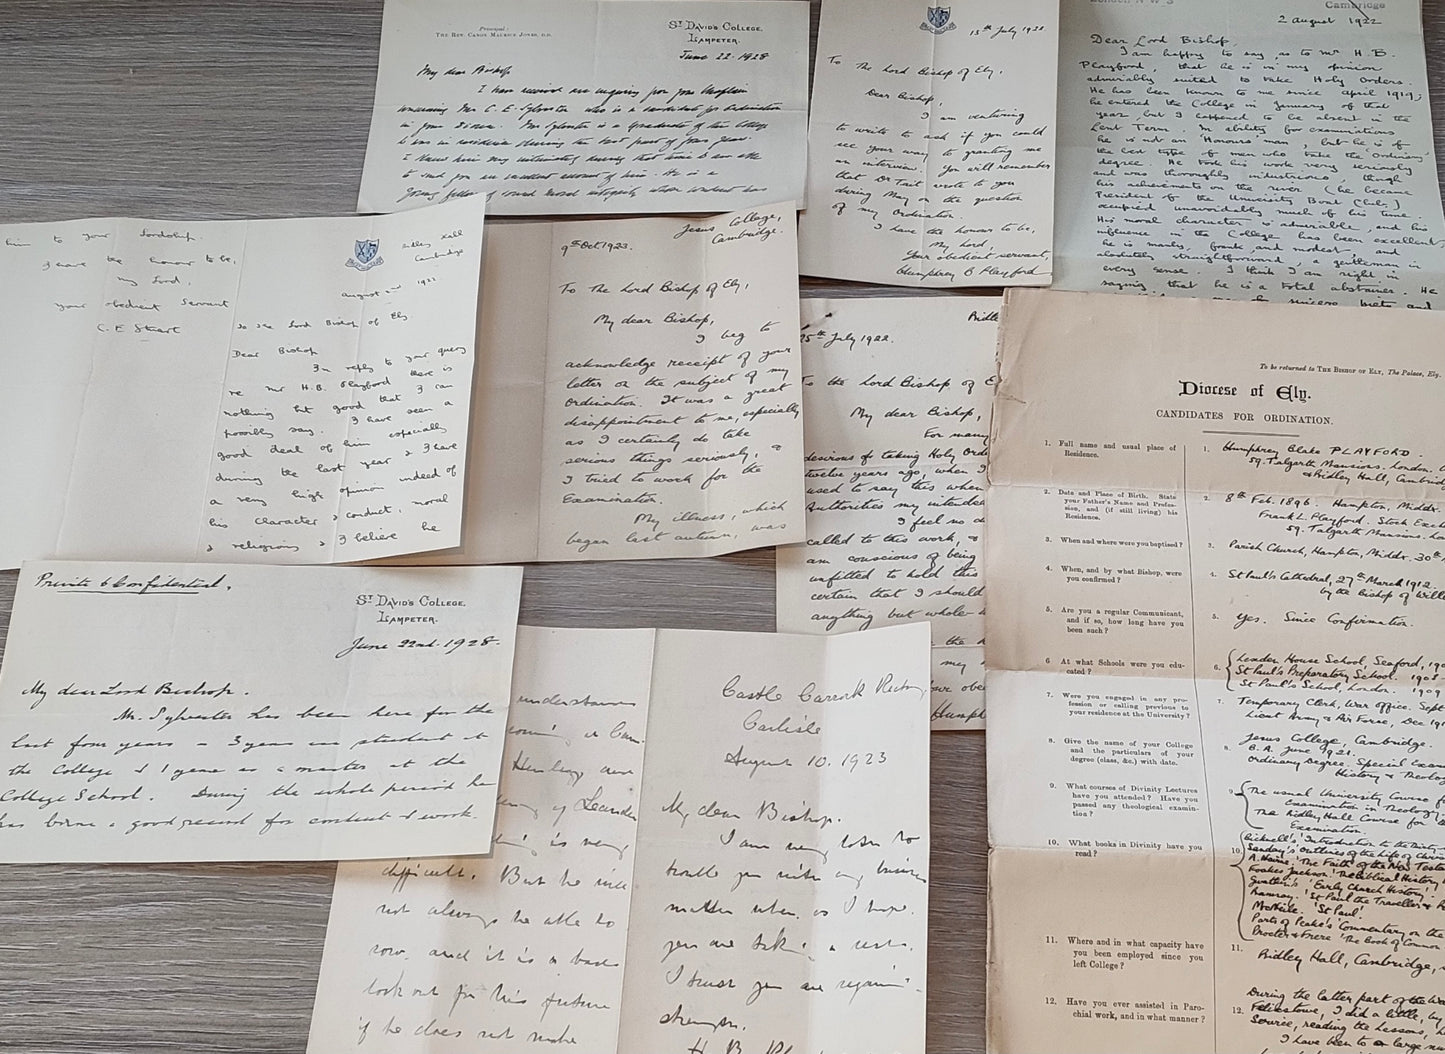 Principal:
THE REV. CANON MAURICE JONES, D.D.
ST DAVID'S COLLEGE,
LAMPETER.
June 22. 1928
My dear Bishop
I have received an enquiry from your Chaplain
concerning Mr C. E. Sylvester who is a candidate for Ordination
in your Diocese. Mr Sylvester is a graduate of this College
& was in residence during the best part of four years.
I knew him very intimately during that time & am able
to send you an excellent account of him. He is a
young fellow of sound moral integrity whose conduct has
15th July 1922
To The Lord Bishop of Ely,
Dear Bishop,
I am venturing
to write to ask if you could
see your way to granting me
an interview. You will remember
that Dr Tait wrote to you
during May on the question
of my Ordination.
I have the honour to be,
My Lord,
Your obedient servant,
Humphrey B Playford
London N W 3
Cambridge
2 August 1922
Dear Lord Bishop,
I am happy to say, as to Mr H. B.
Playford, that he is in my opinion
admirably suited to take Holy Orders.
He has been known to me since April 1919;
he entered the College in January of that
year, but I happened to be absent in the
Lent Term. In ability for examinations
he is not an 'Honours' man, but he is of
the best type of men who take the Ordinary
degree. He took his work very seriously
and was thoroughly industrious though
his achievements on the river (he became
President of the University Boat Club)
occupied unavoidably much of his time.
His moral character is admirable, and his
influence in the College has been excellent;
he is manly, frank and modest, and
absolutely straightforward, a gentleman in
every sense. I think I am right in
saying that he is a total abstainer. He
him to your Lordship.
I have the honour to be,
my Lord,
your obedient servant
C. E Stuart
Ridley Hall
Cambridge
August 2nd 1922
To The Lord Bishop of Ely.
Dear Bishop
In reply to your query
re Mr H.B. Playford there is
nothing but good that I can
possibly say. I have seen a
good deal of him especially
during the last year & I have
a very high opinion indeed of
his character & conduct, moral
& religious, & I believe he
9th Oct. 1923.
Jesus College,
Cambridge.
To The Lord Bishop of Ely,
My dear Bishop,
I beg to
acknowledge receipt of your
letter on the subject of my
Ordination. It was a great
disappointment to me, especially
as I certainly do take
serious things seriously, &
I tried to work for the
Examination.
My illness, which
began last autumn, was
Ridley
25th July 1922.
To the Lord Bishop of E
My dear Bishop,
For many
desirous of taking Holy Orde
twelve years ago when I
used to say this when
Authorities my intende
I feel no d
called to this work, &
am conscious of being
unfitted to hold this
certain that I should
anything but whole-
the h
my
Your obe
Humph
To be returned to THE BISHOP OF ELY, The Palace, Ely.
Diocese of Ely.
CANDIDATES FOR ORDINATION.
1. Full name and usual place of
Residence.
1. Humphrey Blake PLAYFORD.
59. Talgarth Mansions. London.
& Ridley Hall, Cambridg
2. Date and Place of Birth. State
your Father's Name and Profes-
sion, and (if still living) his
Residence.
2. 8th Feb. 1896. Hampton, Middx.
Frank L. Playford. Stock Exch
59. Talgarth Mansions. Lo
3. When and where were you baptised?
3. Parish Church, Hampton, Middx. 30th
4. When, and by what Bishop, were
you confirmed?
4. St Paul's Cathedral, 27th March 1912.
by the Bishop of Wille
5. Are you a regular Communicant,
and if so, how long have you
been such?
5. Yes. Since Confirmation.
6 At what Schools were you edu-
cated?
6. Leaden House School, Seaford, 190
St Paul's Preparatory School. 1908-
St Paul's School, London. 1909
7. Were you engaged in any pro-
fession or calling previous to
your residence at the University?
7. Temporary Clerk, War Office. Sept
Lieut Army & Air Force, Dec 19
8. Give the name of your College
and the particulars of your
degree (class, &c.) with date.
8. Jesus College, Cambridge.
B.A. June 1921.
Ordinary Degree. Special Exam
History & Theolog
9. What courses of Divinity Lectures
have you attended? Have you
passed any theological examin-
tion?
9. The usual University Course f
Examination in Theology
The Ridley Hall Course for
Examination.
10. What books in Divinity have you
read?
10. Bicknell's 'Introduction to the Thirty
Sanday's 'Outlines of the Life of Christ
'The Faith of the New Testam
Foakes Jackson 'The Biblical History
'Early Church History'
Ramsay. 'St Paul the Traveller &
McNeile. 'St Paul'
Parts of Peake's 'Commentary on the
Procter & Frere 'The Book of Common
11. Where and in what capacity have
you been employed since you
left College?
11. Ridley Hall, Cambridge,
12. Have you ever assisted in Paro-
chial work, and in what manner?
12. During the latter part of the War
Felixstowe, I did a little, by
Service, reading the Lessons,
I have been to a large nu
Private & Confidential.
ST DAVID'S COLLEGE.
LAMPETER.
June 22nd. 1928.
My dear Lord Bishop.
Mr. Sylvester has been here for the
last four years - 3 years as a student at
the College & 1 year as a master at the
College School. During the whole period he
has borne a good record for conduct & work.
understand
Henley
of Leander
is very
difficult. But he will
not always be able to
row. and it is a bad
look out for his future
if he does not make
Castle Carrock Rectory,
Carlisle
August 10. 1923
My dear Bishop.
I am very loth to
trouble you with any business
matter when, as I hope.
you are taking a rest.
I trust you are regain-
strength.
H. B. Pla